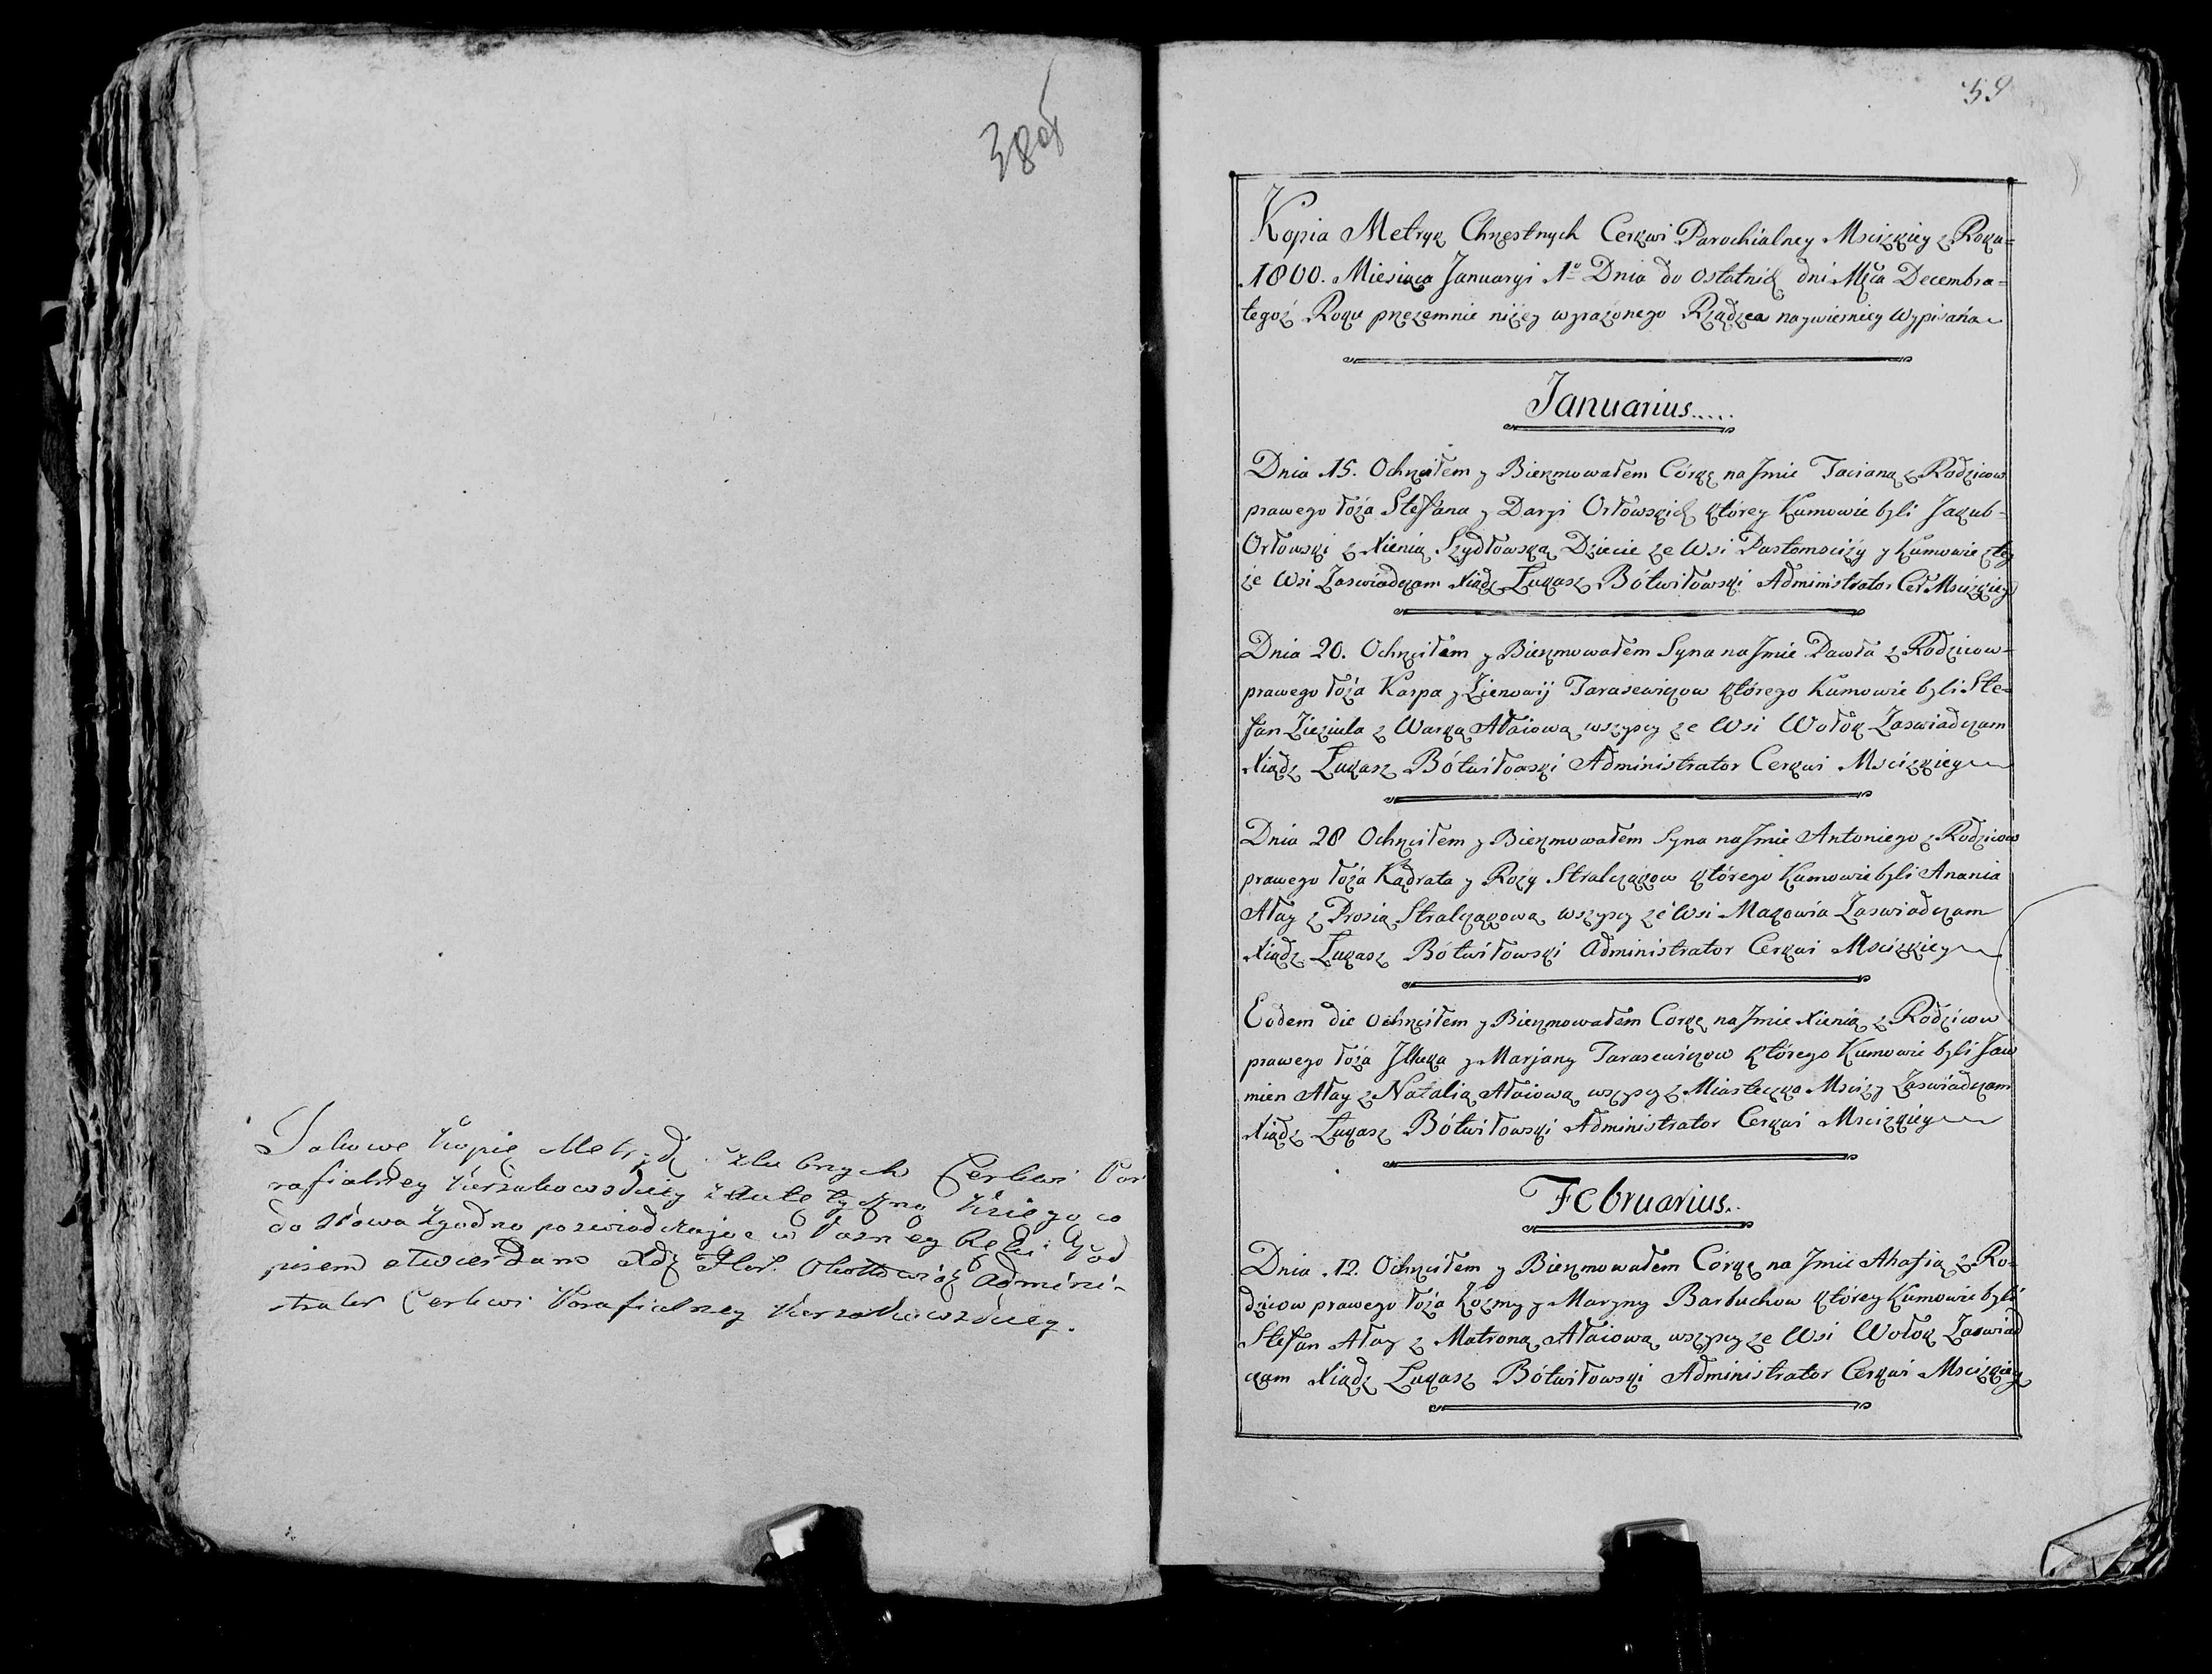 380f
Takowę Kopię Metryk szlubnych Cerkwi Par
rafialney Kierzakowskiey z Autetyczną Xięgą co
do słowa zgodną poswiadczając własney Ręki Pod
pisem stwierdzam Xdz Flor. Admini-
strator Cerkwi Parafialney Kierzakowskiey.
59
Kopia Metryk Chrzestnych Cerkwi Parochialney Mscizkiey z Roku=
1800. Miesiąca Januaryi 1º Dnia do ostatnich dni Mca Decembra=
tegoż Roku przezemnie niżey wyrażonego Rządzca naywierniey Wypisána
Januarius.....
Dnia 15. Ochrzciłem y Bierzmowałem Córkę na Jmie Tacianą z Rodzicow
prawego łoża Stefana y Daryi Orłowskich którey Kumowie byli Jakub-
Orłowski z Xienią Szydłowską Dziecie ze Wsi Pastomsciży y Kumowie z tey
że Wsi Zaswiadczam Xiądz Łukasz Bótwiłowski Administrator Cer Mscizkiey
Dnia 20. Ochrzciłem y Bierzmowałem Syna na Jmie Pawła z Rodzicow=
prawego łoża Karpa y Zienowij Tarasewiczow którego Kumowie byli Ste=
fan Zieziula z Warką Ałaiową wszyscy ze Wsi Wołok Zaswiadczam
Xiądz Łukasz Bótwiłowski Administrator Cerkwi Mscizkiey
Dnia 28 Ochrzciłem y Bierzmowałem Syna na Jmie Antoniego z Rodzicow
prawego łoża Kądrata y Rozy Stralcząkow którego Kumowie byli Anania
Ałay z Prosią Stralcząkową wszyscy zé Wsi Makowia Zaswiadczam
Xiądz Łukasz Bótwiłowski Administrator Cerkwi Mscizkiey
Eodem die ochrzciłem y Bierzmowałem Corkę na Jmie Xienią z Rodzicow
prawego łoża Jlluka y Marjany Tarasewiczow którego Kumowie byli Jaw
mien Ałay z Natalią Ałaiową wszyscy z Miasteczka Mscizy Zaswiadczam
Xiądz Łukasz Bótwiłowski Administrator Cerkwi Mscizkiey
Februarius..
Dnia .12. Ochrzciłem y Bierzmowałem Córkę na Jmie Ahafią z Ro-
dzicow prawego łoża Kozmy y Maryny Barbuchow którey Kumowie byli
Stefan Ałay z Matroną Ałaiową wszyscy ze Wsi Wołok Zaswiad
czam Xiądz Łukasz Bótwiłowski Administrator Cerkwi Mscizkiey